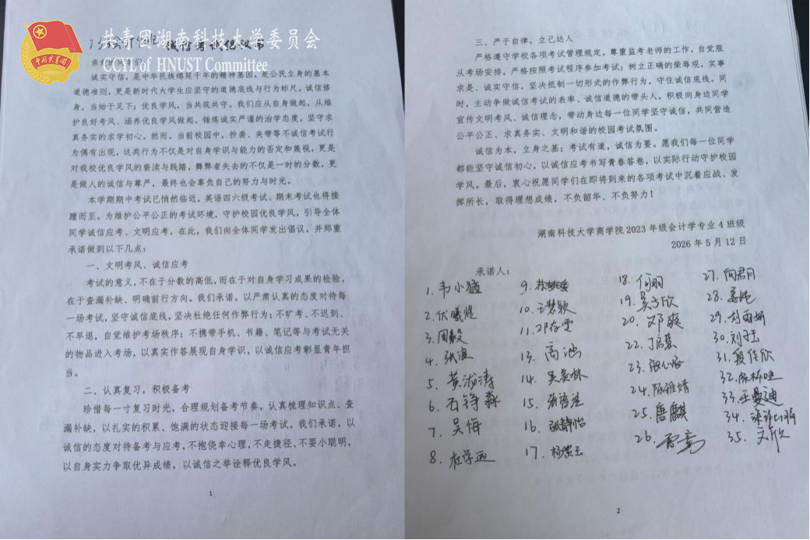 共青团湖南科技大学委员会
CCYL of HNUST Committee
诚信考试倡议书
诚实守信，是中华民族绵延千年的精神基因，是公民立身的基本
道德准则，更是新时代大学生应坚守的道德底线与行为标尺。诚信修
身，当始于足下；优良学风，当共筑共守。我们应从自身做起，从维
护良好考风、涵养优良学风做起，锤炼诚实严谨的治学态度，坚守求
真务实的求学初心。然而，当前校园中，抄袭、夹带等不诚信考试行
为偶有出现，这类行为不仅是对自身学识与能力的否定和蔑视，更是
对我校优良学风的亵渎与践踏，舞弊者失去的不仅是一时的分数，更
是做人的诚信与尊严，最终也会辜负自己的努力与时光。
本学期期中考试已悄然临近，英语四六级考试、期末考试也将接
踵而至。为维护公平公正的考试环境，守护校园优良学风，引导全体
同学诚信应考、文明应考，在此，我们向全体同学发出倡议，并郑重
承诺做到以下几点：
一、文明考风、诚信应考
考试的意义，不在于分数的高低，而在于对自身学习成果的检验，
在于查漏补缺、明确前行方向。我们承诺，以严肃认真的态度对待每
一场考试，坚守诚信底线，坚决杜绝任何作弊行为；不旷考、不迟到、
不早退，自觉维护考场秩序；不携带手机、书籍、笔记等与考试无关
的物品进入考场，以真实作答展现自身学识，以诚信应考彰显青年担
当。
二、认真复习，积极备考
珍惜每一寸复习时光，合理规划备考节奏，认真梳理知识点、查
漏补缺，以扎实的积累、饱满的状态迎接每一场考试。我们承诺，以
诚信的态度对待备考与应考，不抱侥幸心理，不走捷径、不耍小聪明，
以自身实力争取优异成绩，以诚信之举诠释优良学风。
1
三、严于自律，立己达人
严格遵守学校各项考试管理规定，尊重监考老师的工作，自觉服
从考场安排，严格按照考试程序参加考试；树立正确的荣辱观，实事
求是、诚实守信，坚决抵制一切形式的作弊行为，守住诚信底线。同
时，主动争做诚信考试的表率、诚信道德的带头人，积极向身边同学
宣传文明考风、诚信理念，带动身边每一位同学坚守诚信，共同营造
公平公正、求真务实、文明和谐的校园考试氛围。
诚信为本，立身之基；考试有道，诚信为要。愿我们每一位同学
都能坚守诚信初心，以诚信应考书写青春答卷，以实际行动守护校园
学风。最后，衷心祝愿同学们在即将到来的各项考试中沉着应战、发
挥所长，取得理想成绩，不负韶华、不负努力！
湖南科技大学商学院 2023 年级会计学专业 4 班级
2026 年 5 月 12 日
承诺人：
1. 韦小媛
3. 周毅
4. 张演
5. 黄泷涛
6. 石铮霖
7. 吴倩
8. 杜学远
9.
10. 王梦歌
11.
13. 高油
14. 吴美林
15.
16. 张静怡
17. 杨棠玉
18. 何羽
19. 吴子欣
20. 邓爽
22. 丁启慧
23.
24. 陈雅婧
25. 唐麒
26.
27. 向君月
28.
29. 刘雨婷
30. 刘子钰
31. 夏佳欣
32.
33. 王曼迪
34.
35. 文欣
2